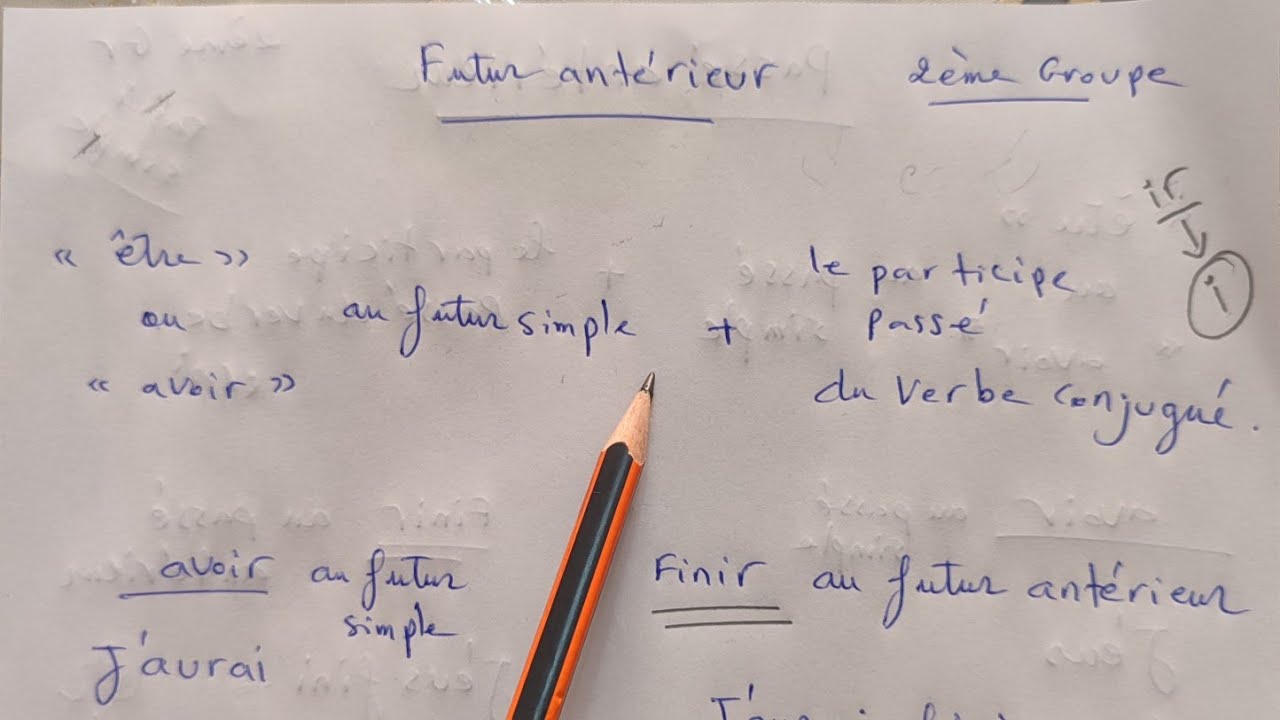 Futur antérieur 2ème Groupe
« être » ou « avoir » au futur simple + le participe passé du verbe conjugué.
ir → i
avoir au futur simple
Finir au futur antérieur
J'aurai